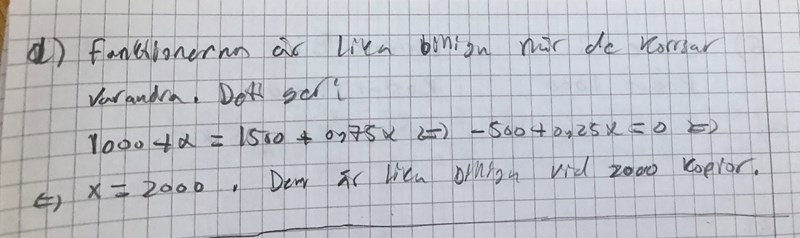 d) Funktionerna är lika billiga när de korsar
varandra. Det ger:
1000 + x = 1500 + 0,75x ⇔ -500 + 0,25x = 0 ⇔
⇔ x = 2000. Dem är lika billiga vid 2000 kopior.